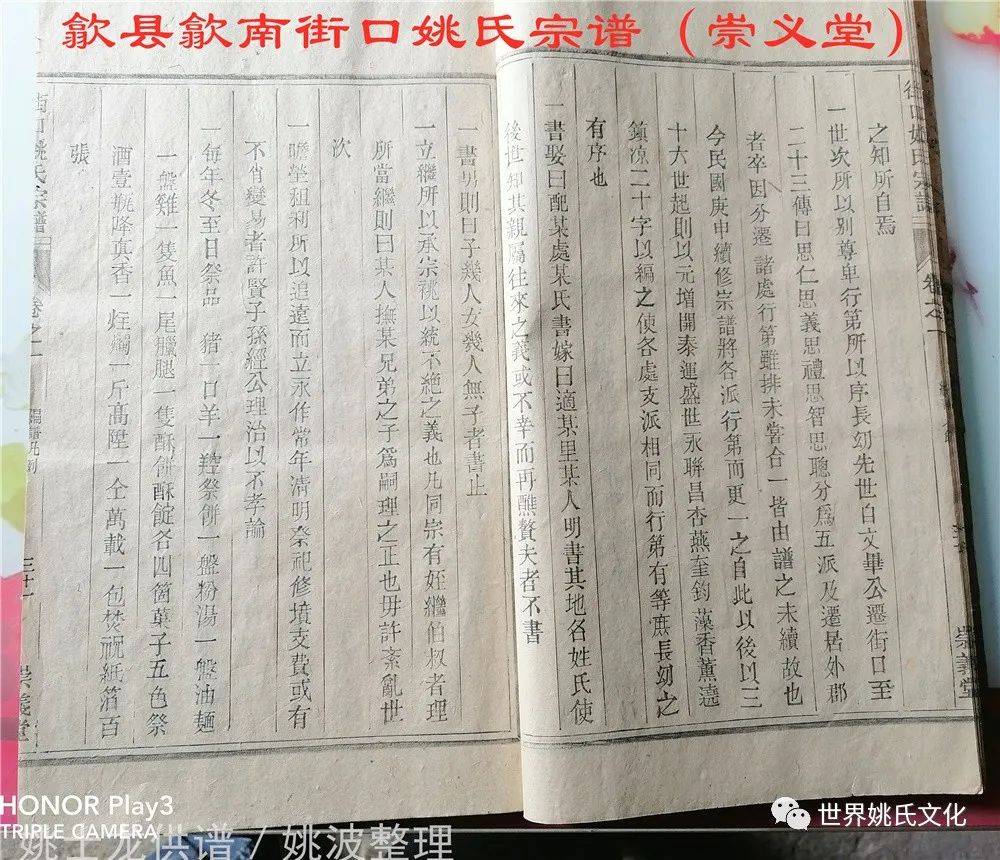 歙县歙南街口姚氏宗谱（崇义堂）
之知所自焉
一世次所以别尊卑行第所以序長幼先世自文畢公遷街口至
二十三傳曰思仁思義思禮思智思聰分爲五派及遷居外郡
者卒因分遷諸處行第雖排未嘗合一皆由譜之未續故也
今民國庚申續修宗譜將各派行第而更一之自此以後以三
十六世起則以元增開泰運盛世永聯昌杏燕奎鈞漢香薰澆
鎮凉二十字以編之使各處支派相同而行第有等庶長幼之
有序也
一書娶曰配某處某氏書嫁曰適某里某人明書其地各姓氏使
後世知其親屬往來之義或不幸而再醮贅夫者不書
一書男則曰子幾人女幾人無子者書止
一立繼所以承宗祧以統不絶之義也凡同宗有姪繼伯叔者理
所當繼則曰某人撫某兄弟之子爲嗣理之正也毋許紊亂世
次
一瞻塋租利所以追遠而立永作常年清明祭祀修墳支費或有
不肖變易者許賢子孫經公理治以不孝論
一每年冬至日祭品 猪一口羊一羫祭餅一盤粉湯一盤油麵
一盤雞一隻魚一尾臘腿一隻酥餅酥餛各四箇菓子五色祭
酒壹甁降真香一炷燭一斤髙陞一仝萬載一包焚祝紙箔百
張
街口姚氏宗譜
卷之一
編譜凡例
三十一
崇義堂
街口姚氏宗譜
卷之一
崇義堂
HONOR Play3
TRIPLE CAMERA
姚土龙供谱/姚波整理
世界姚氏文化